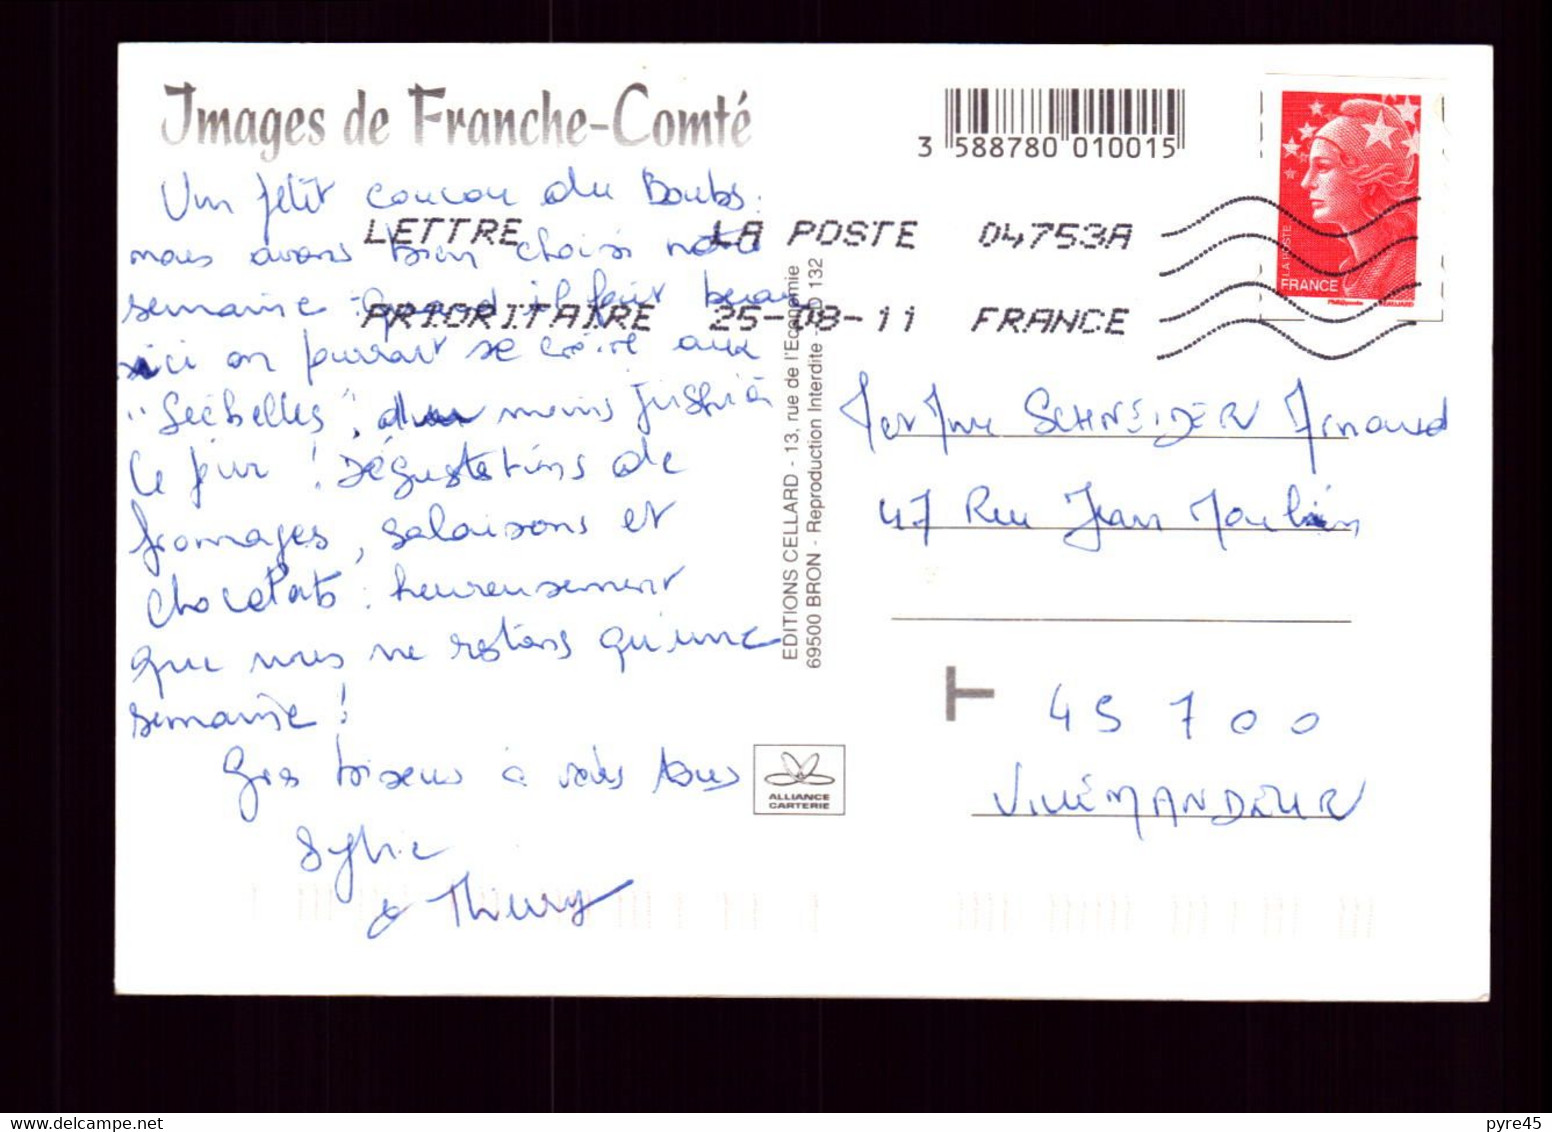 Images de Franche-Comté
3 588780 010015
Un petit coucou du Doubs.
nous avons bien choisi notre
semaine : quand il fait beau
ici on pourrait se croire aux
"Séchelles", du moins jusqu'à
ce jour ! Dégustations de
fromages, salaisons et
chocolats : heureusement
que nous ne restons qu'une
semaine !
Gros bisous à vous tous
Sylvie
& Thierry
LETTRE LA POSTE 04753A
PRIORITAIRE 25-08-11 FRANCE
EDITIONS CELLARD - 13, rue de l'Economie
69500 BRON - Reproduction Interdite 132
LA POSTE
FRANCE
SCHNEIDER Arnaud
47 Rue Jean Moulin
T
45 700
VILLEMANDEUR
ALLIANCE
CARTERIE
pyre45